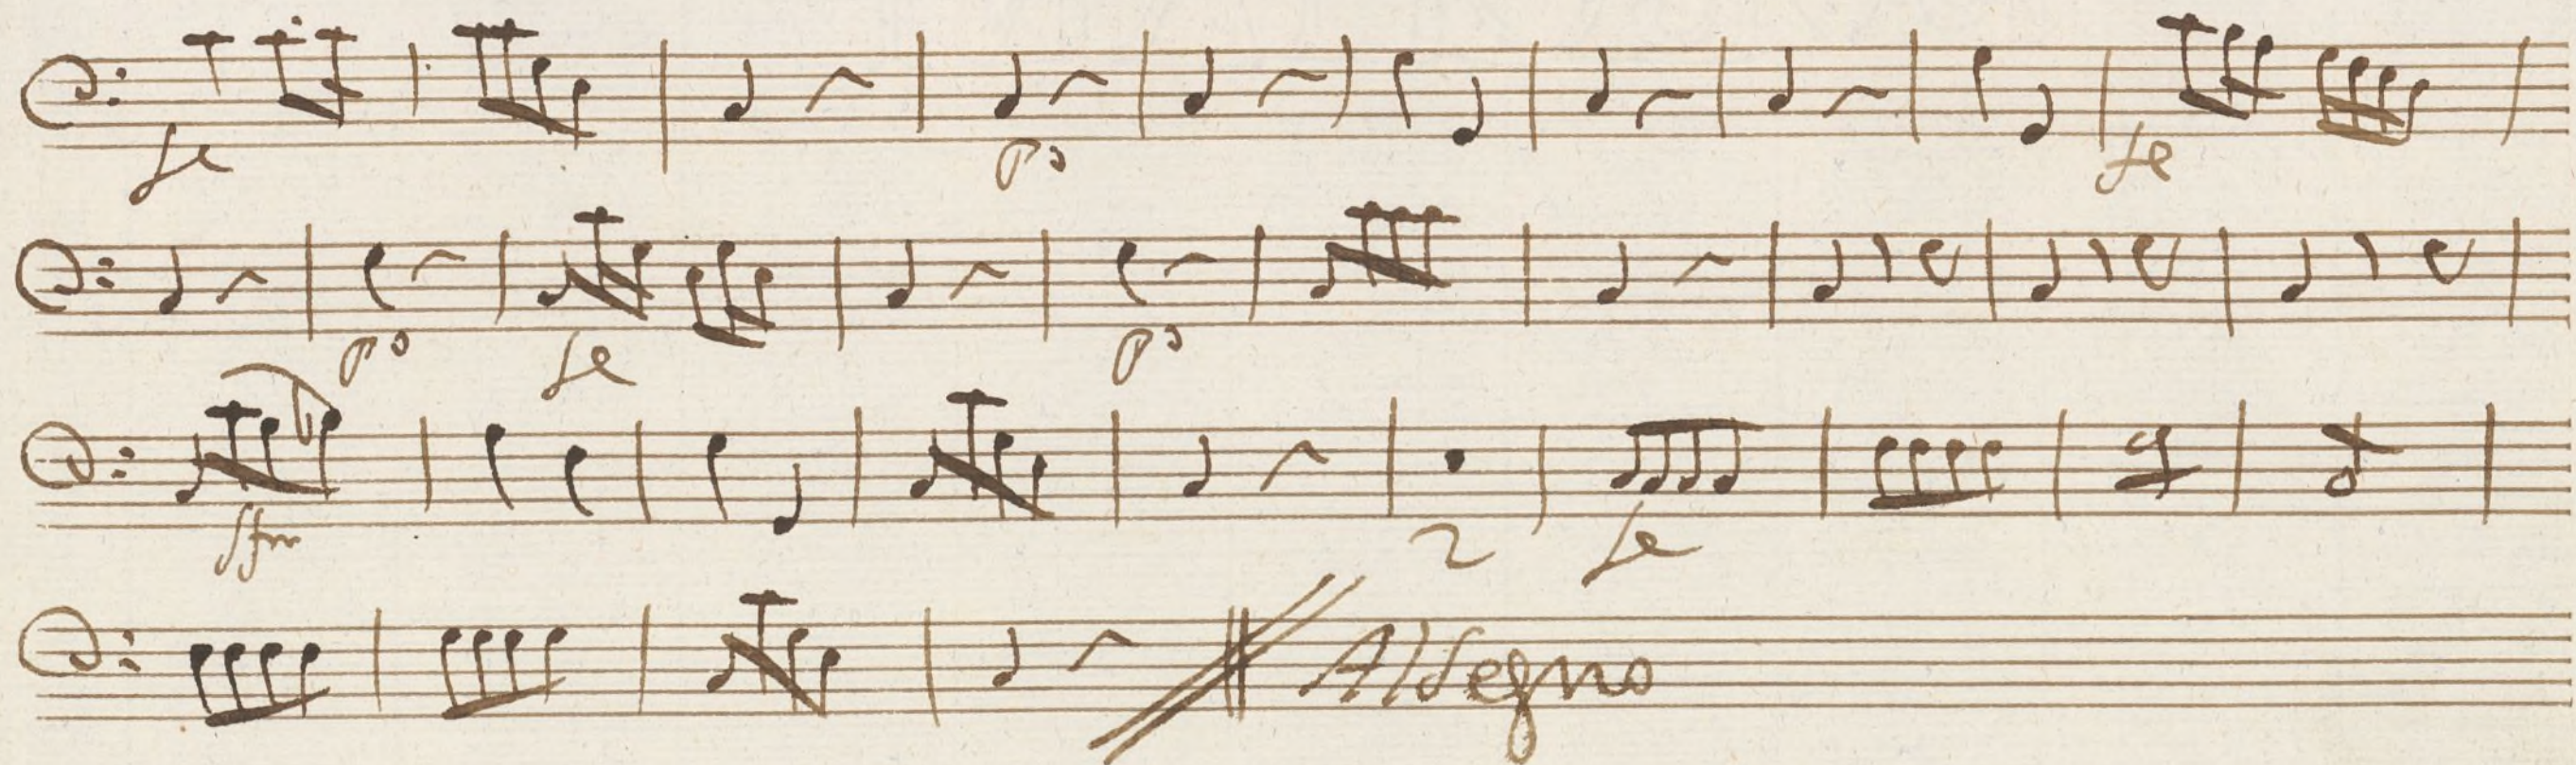 fe po fe
po fe po
sfm 2 fe
Al Segno